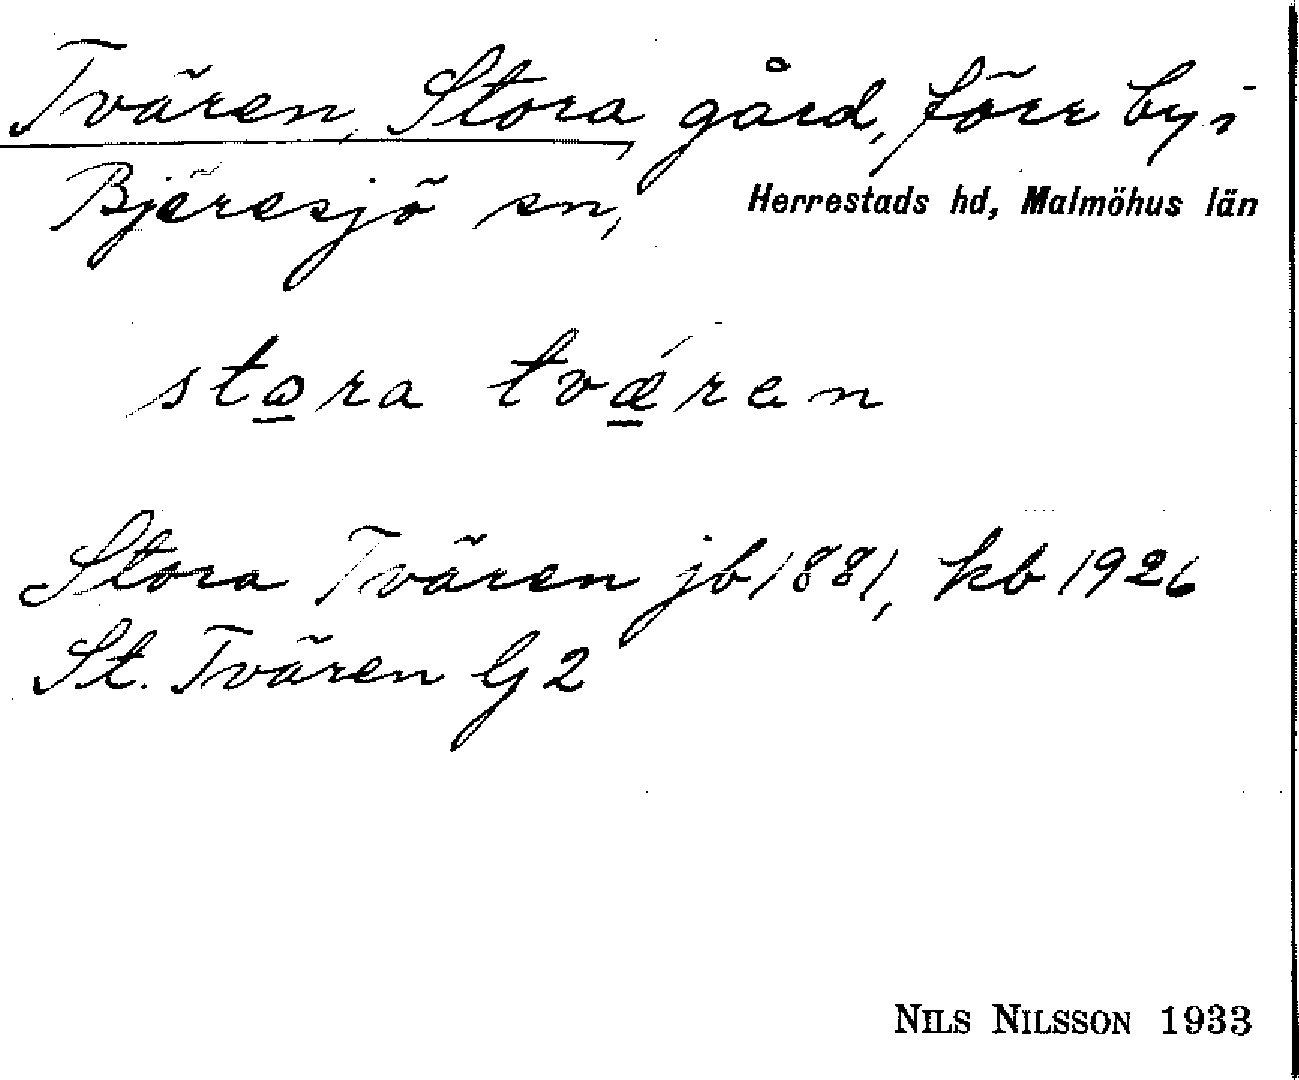 Tvären, Stora, gård, förr by i
Bjäresjö sn, Herrestads hd, Malmöhus län
stora tvǽren
Stora Tvären jb 1881, kb 1926
St. Tvären G 2
NILS NILSSON 1933